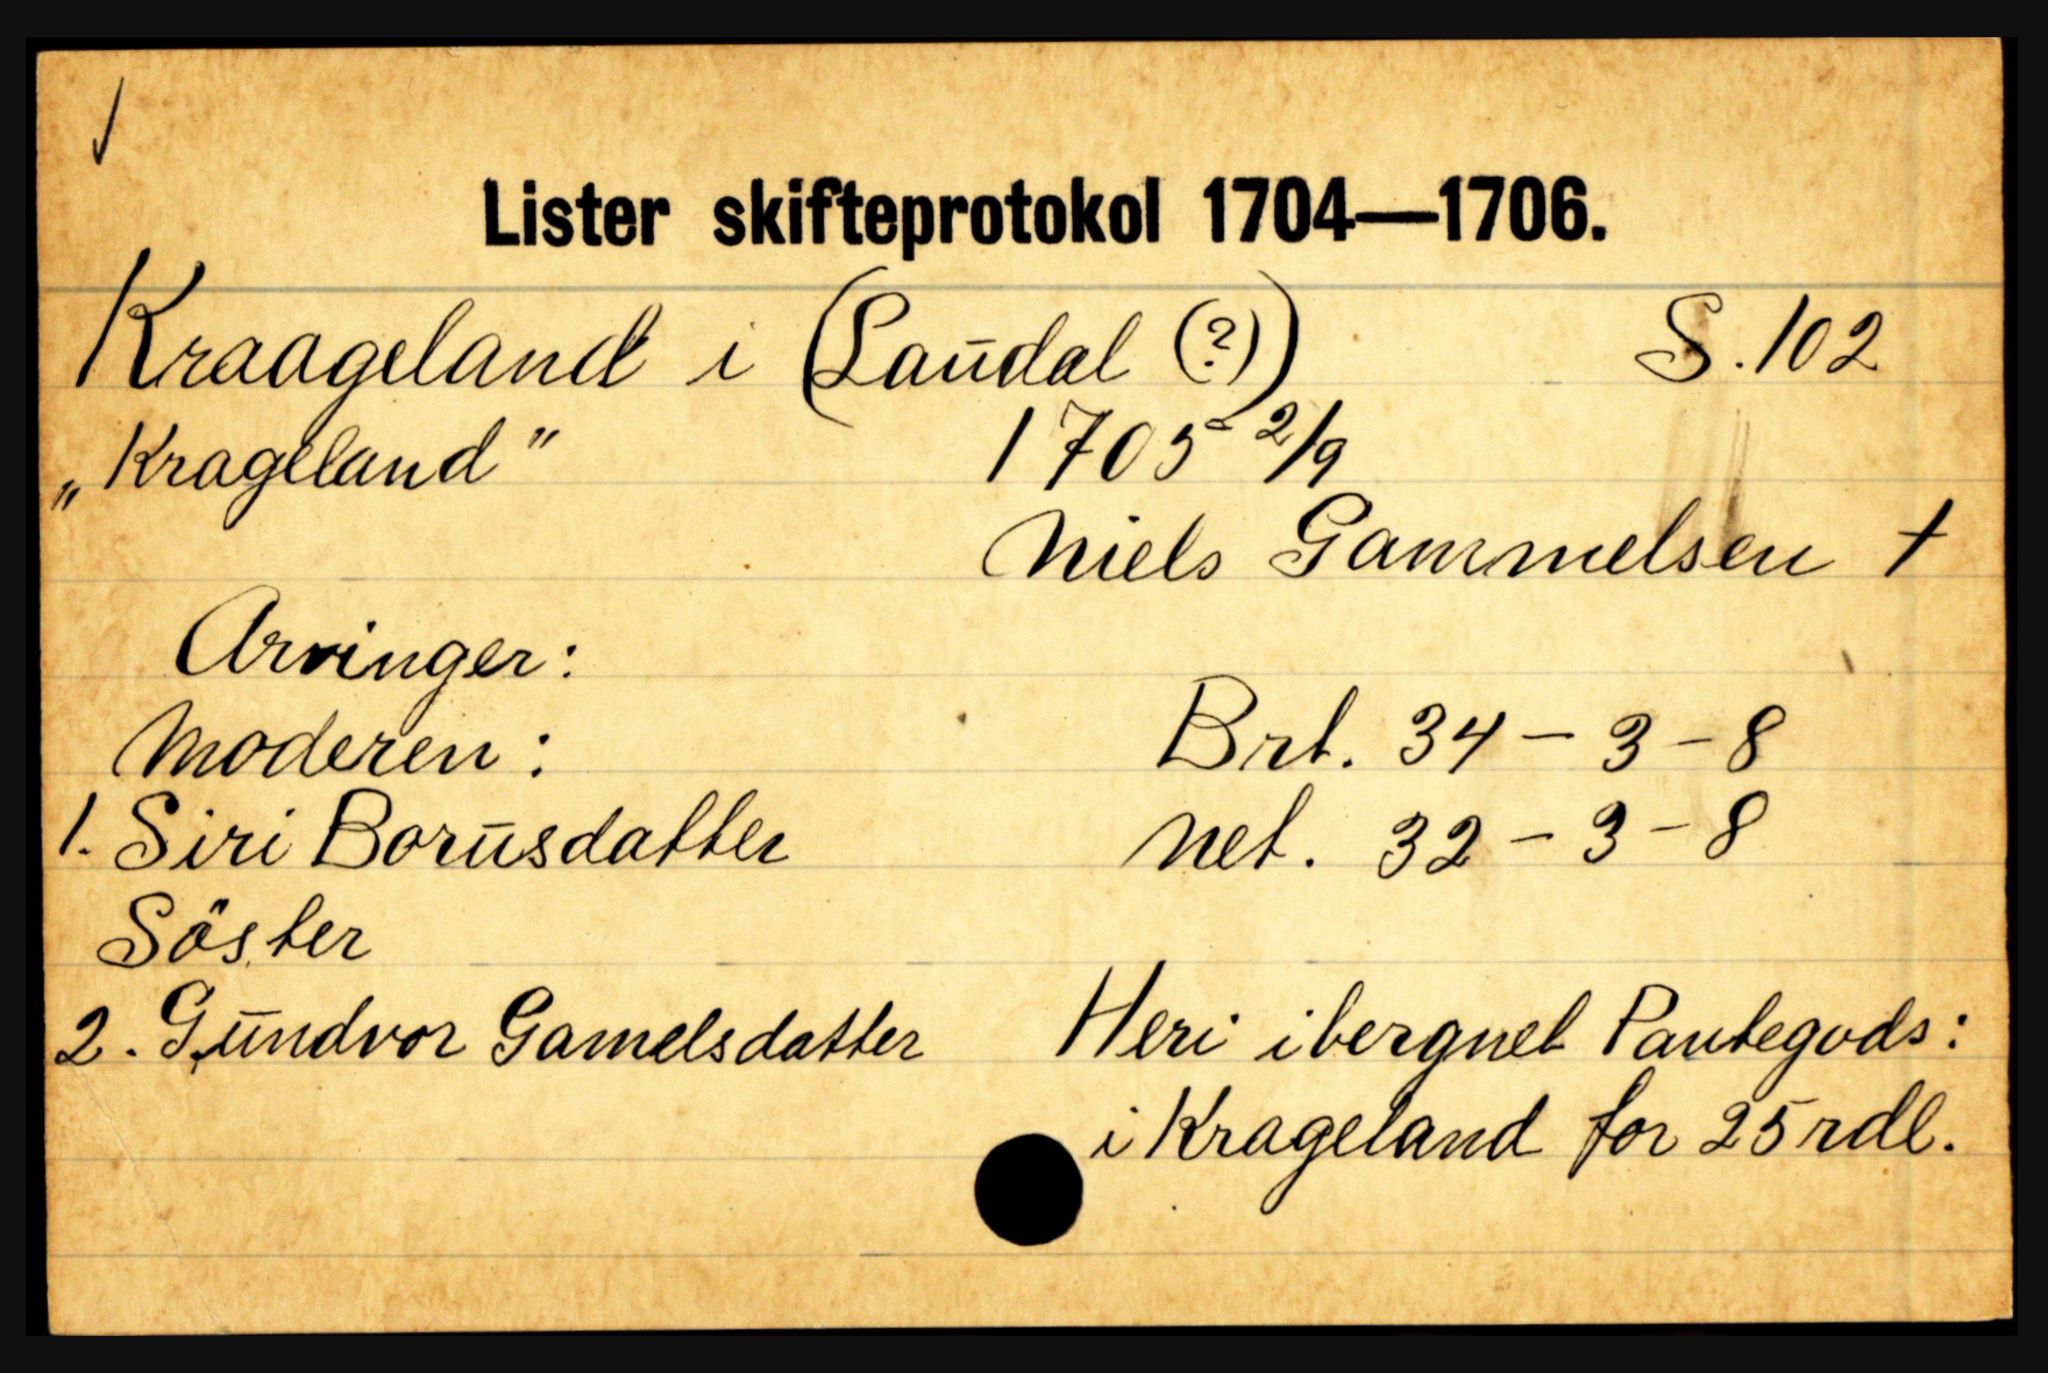 Lister skifteprotokol 1704—1706.
Kraageland i (Laudal (?)) S. 102
„Krageland" 1705 2/9
Niels Gammelsen †
Arvinger:
Moderen: Brt. 34 - 3 - 8
1. Siri Borusdatter net. 32 - 3 - 8
Söster
2. Gundvor Gamelsdatter Heri ibergnet Pantegods:
i Krageland for 25 rdl.